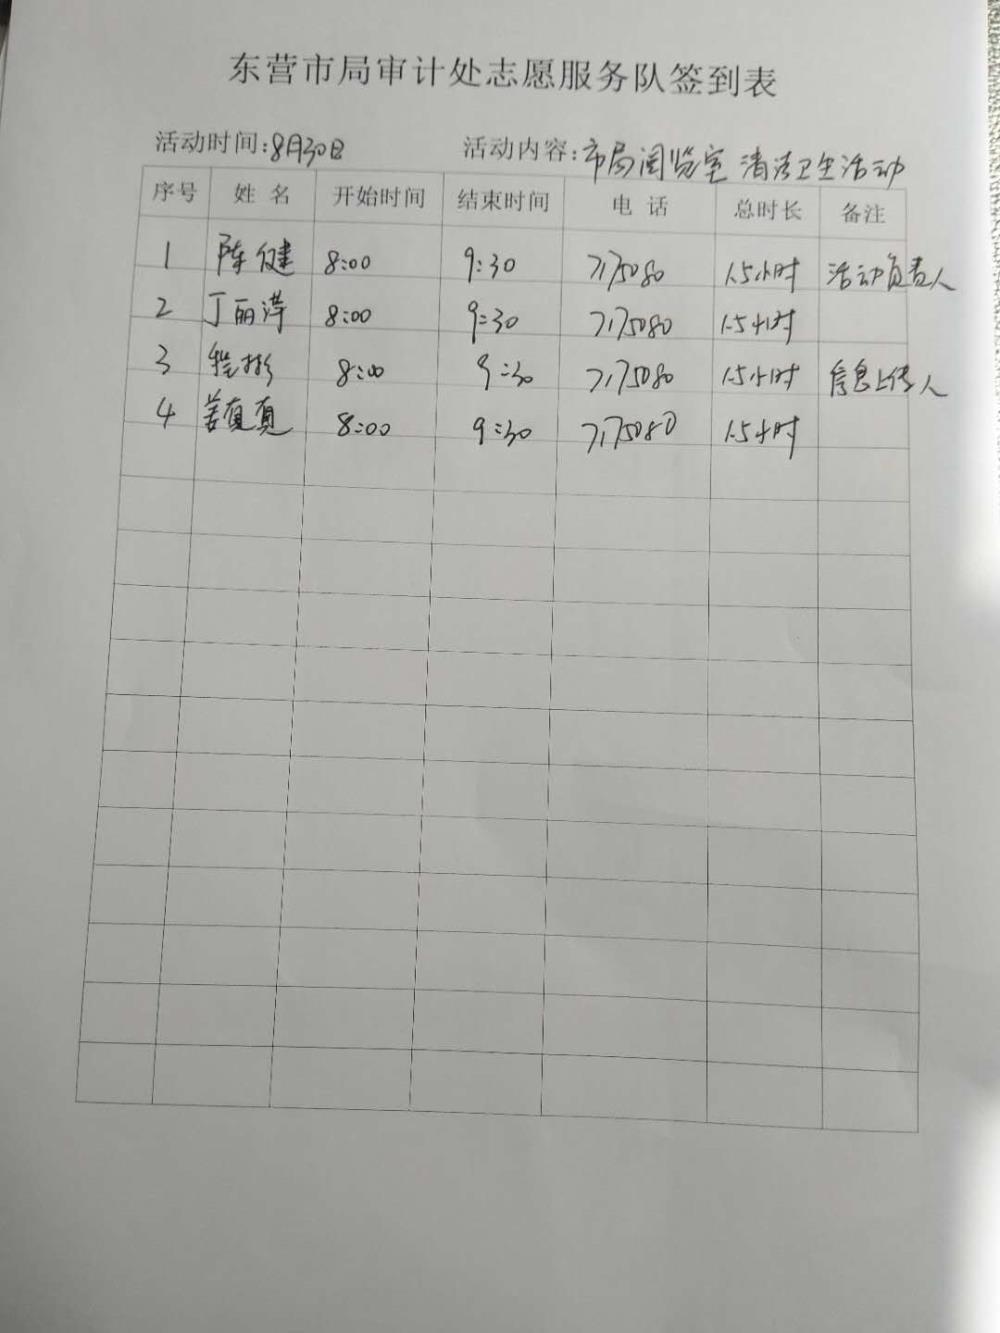 东营市局审计处志愿服务队签到表
活动时间:8月30日 活动内容:市局阅览室 清洁卫生活动
序号 姓名 开始时间 结束时间 电话 总时长 备注
1 陈健 8:00 9:30 7175080 1.5小时 活动负责人
2 丁丽萍 8:00 9:30 7175080 1.5小时
3 8:00 9:30 7175080 1.5小时 信息上传人
4 8:00 9:30 7175080 1.5小时